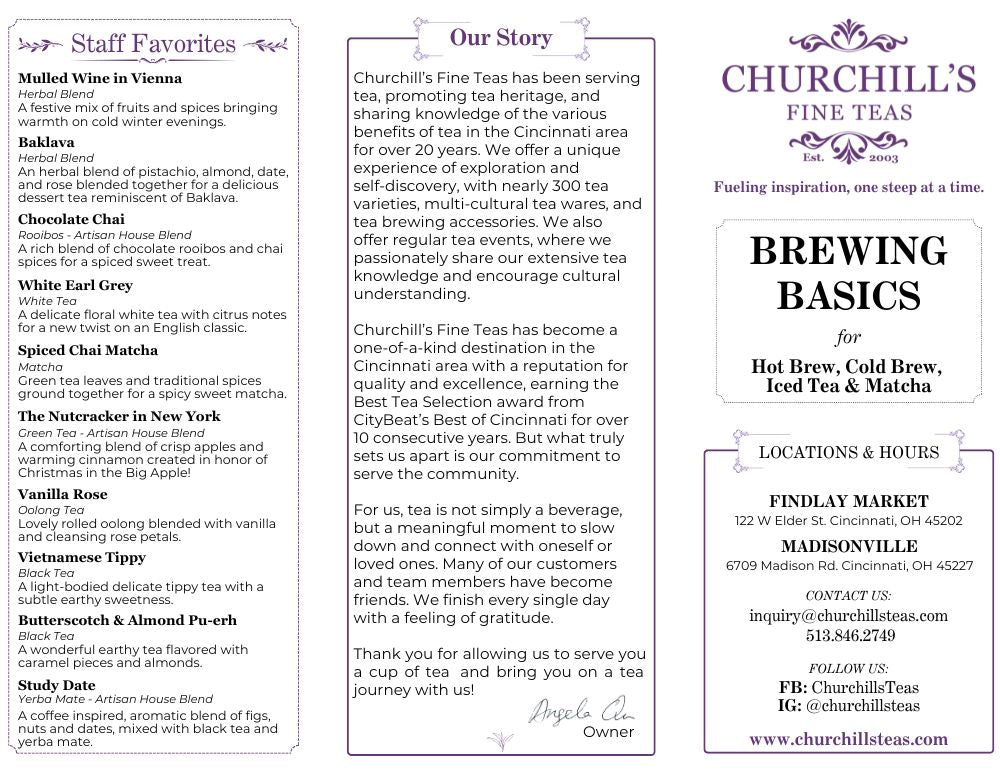 Staff Favorites
Mulled Wine in Vienna
Herbal Blend
A festive mix of fruits and spices bringing
warmth on cold winter evenings.
Baklava
Herbal Blend
An herbal blend of pistachio, almond, date,
and rose blended together for a delicious
dessert tea reminiscent of Baklava.
Chocolate Chai
Rooibos - Artisan House Blend
A rich blend of chocolate rooibos and chai
spices for a spiced sweet treat.
White Earl Grey
White Tea
A delicate floral white tea with citrus notes
for a new twist on an English classic.
Spiced Chai Matcha
Matcha
Green tea leaves and traditional spices
ground together for a spicy sweet matcha.
The Nutcracker in New York
Green Tea - Artisan House Blend
A comforting blend of crisp apples and
warming cinnamon created in honor of
Christmas in the Big Apple!
Vanilla Rose
Oolong Tea
Lovely rolled oolong blended with vanilla
and cleansing rose petals.
Vietnamese Tippy
Black Tea
A light-bodied delicate tippy tea with a
subtle earthy sweetness.
Butterscotch & Almond Pu-erh
Black Tea
A wonderful earthy tea flavored with
caramel pieces and almonds.
Study Date
Yerba Mate - Artisan House Blend
A coffee inspired, aromatic blend of figs,
nuts and dates, mixed with black tea and
yerba mate.
Our Story
Churchill's Fine Teas has been serving
tea, promoting tea heritage, and
sharing knowledge of the various
benefits of tea in the Cincinnati area
for over 20 years. We offer a unique
experience of exploration and
self-discovery, with nearly 300 tea
varieties, multi-cultural tea wares, and
tea brewing accessories. We also
offer regular tea events, where we
passionately share our extensive tea
knowledge and encourage cultural
understanding.
Churchill's Fine Teas has become a
one-of-a-kind destination in the
Cincinnati area with a reputation for
quality and excellence, earning the
Best Tea Selection award from
CityBeat's Best of Cincinnati for over
10 consecutive years. But what truly
sets us apart is our commitment to
serve the community.
For us, tea is not simply a beverage,
but a meaningful moment to slow
down and connect with oneself or
loved ones. Many of our customers
and team members have become
friends. We finish every single day
with a feeling of gratitude.
Thank you for allowing us to serve you
a cup of tea and bring you on a tea
journey with us!
Angela
Owner
CHURCHILL'S
FINE TEAS
Est. 2003
Fueling inspiration, one steep at a time.
BREWING
BASICS
for
Hot Brew, Cold Brew,
Iced Tea & Matcha
LOCATIONS & HOURS
FINDLAY MARKET
122 W Elder St. Cincinnati, OH 45202
MADISONVILLE
6709 Madison Rd. Cincinnati, OH 45227
CONTACT US:
inquiry@churchillsteas.com
513.846.2749
FOLLOW US:
FB: ChurchillsTeas
IG: @churchillsteas
www.churchillsteas.com